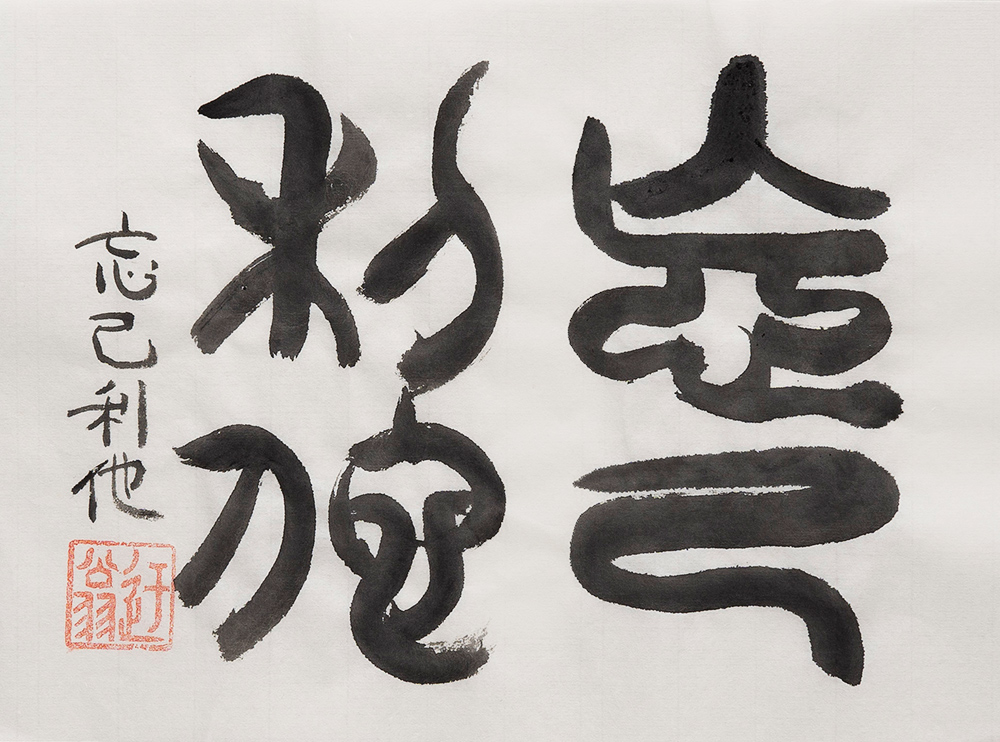 忘己
利他
忘己利他